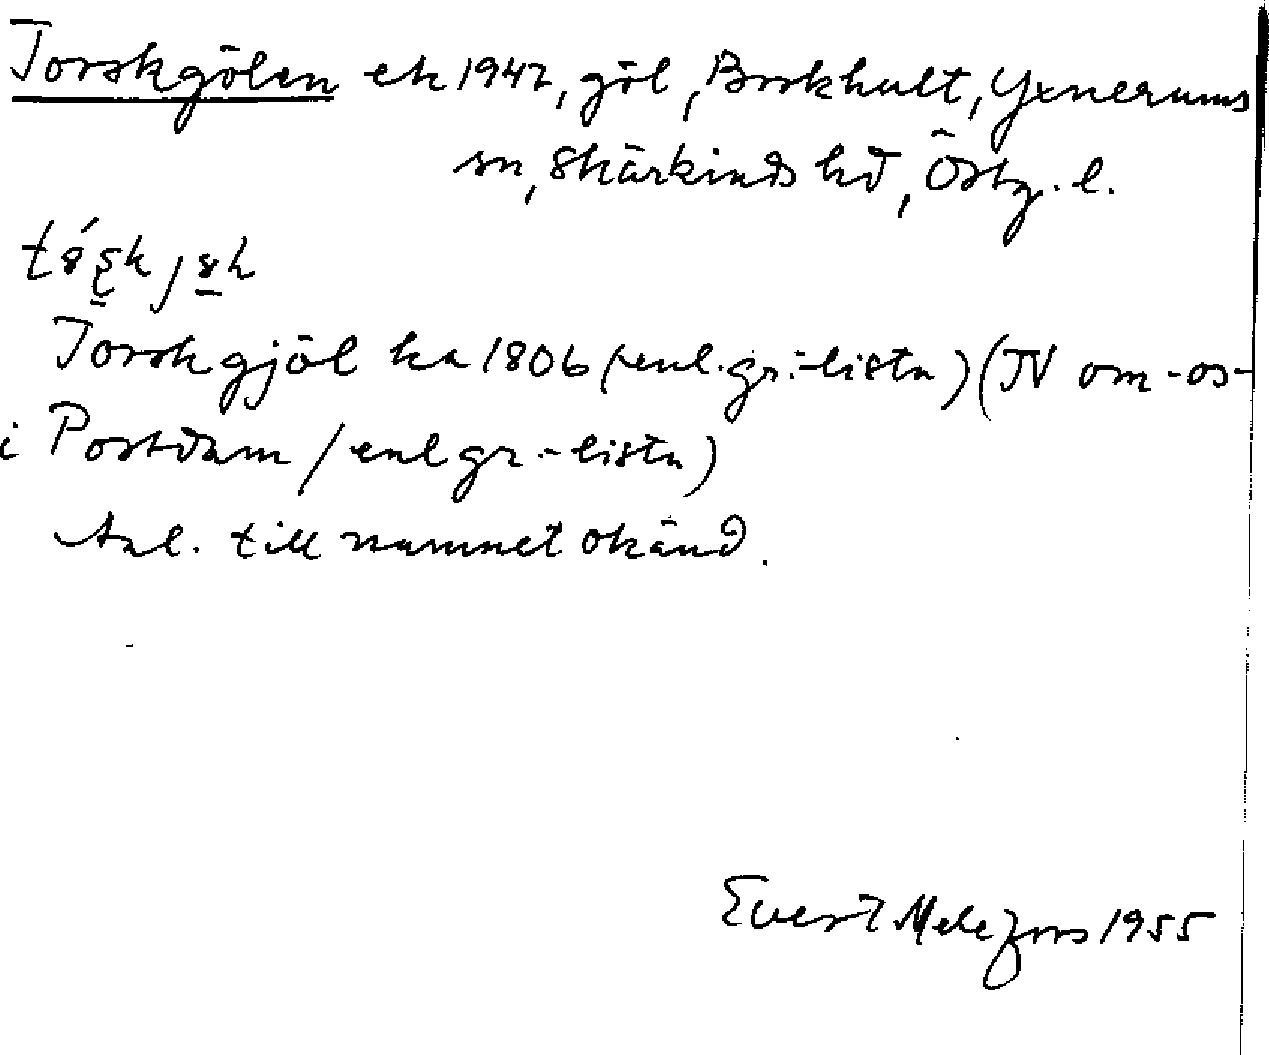 Torskgölen ek 1947, göl, Borkhult, Yxnerums
sn, Skärkinds hd, Östg. l.
Torskgjöl ka 1806 (enl. gr.-lista) (TV om -os-
i Postdam / enl gr.-lista)
Anl. till namnet okänd.
Evert Melefors 1955